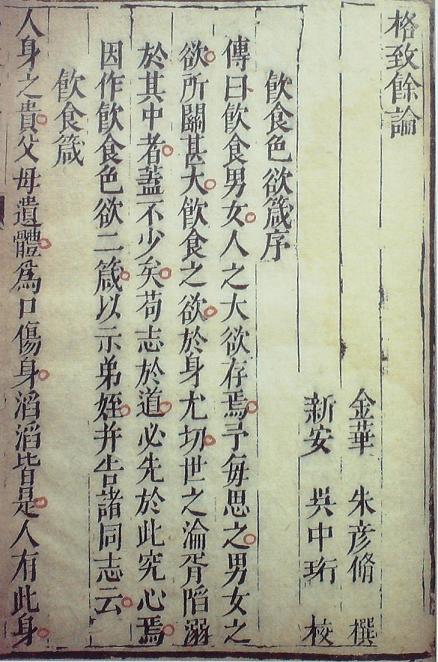 格致餘論
金華 朱彥脩 撰
新安 吳中珩 校
飲食色欲箴序
傳曰飲食男女人之大欲存焉予每思之男女之
欲所關甚大飲食之欲於身尤切世之淪胥陷溺
於其中者蓋不少矣苟志於道必先於此究心焉
因作飲食色欲二箴以示弟姪并告諸同志云
飲食箴
人身之貴父母遺體為口傷身滔滔皆是人有此身